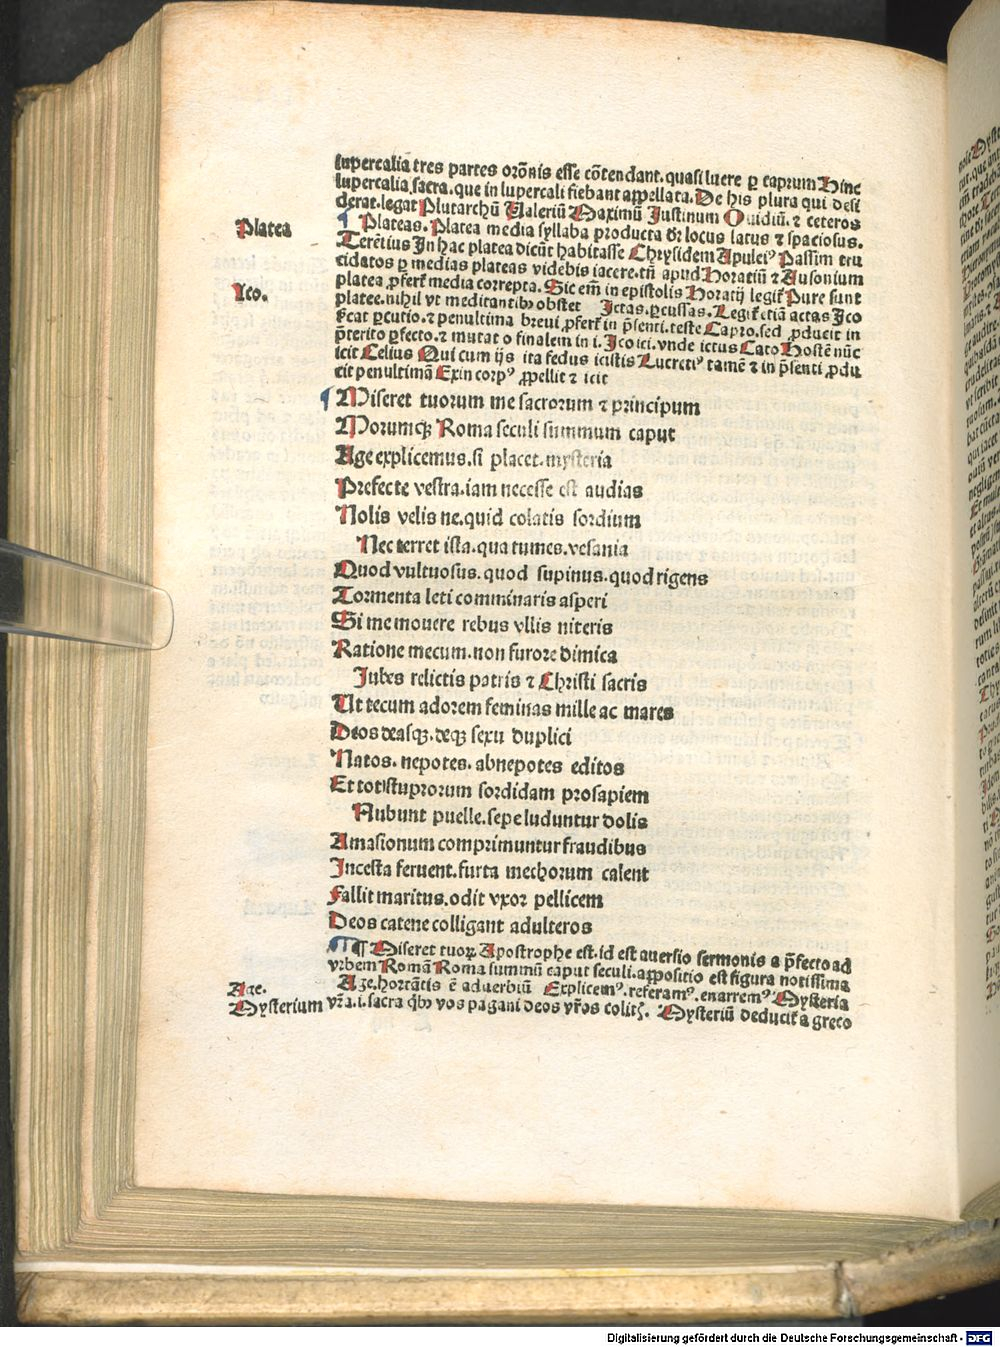 lupercalia tres partes orōnis esse cōtendant. quasi luere ꝑ caprum Hinc
lupercalia sacra. que in lupercali fiebant appellata. De his plura qui desi
derat. legat Plutarchū Ualeriū Maximū Justinum Ouidiū. ⁊ ceteros
Platea
¶ Plateas. Platea media syllaba producta dr̄ locus latus ⁊ spaciosus.
Terētius In hac platea dicūt habitasse Chrysidem Apuleiꝰ Passim tru
cidatos ꝑ medias plateas videbis iacere. tn̄ apud Horatiū ⁊ Ausonium
platea ꝓfert̉ media correpta. Sic em̄ in epistolis Horatij legit̉ Pure sunt
Ico.
platee. nihil vt meditantibꝰ obstet Ictas. ꝑcussas. Legit̉ etiā actas Ico
ficat ꝑcutio. ⁊ penultima breui ꝓfert̉ in p̄senti. teste Capro. sed ꝓducit in
p̄terito ꝑfecto. ⁊ mutat o finalem in i. Ico ici. vnde ictus Cato Hostē nūc
icit Celius Qui cum ijs ita fedus icistis Lucretiꝰ tamē ⁊ in p̄senti ꝓdu
cit penultimā Exin corpꝰ ꝓpellit ⁊ icit
¶ Miseret tuorum me sacrorum ⁊ principum
Morumqꝫ Roma seculi summum caput
Age explicemus. si placet. mysteria
Prefecte vestra. iam necesse est audias
Nolis velis ne. quid colatis sordium
Nec terret ista. qua tumes. vesania
Quod vultuosus. quod supinus. quod rigens
Tormenta leti comminaris asperi
Si me mouere rebus vllis niteris
Ratione mecum. non furore dimica
Jubes relictis patris ⁊ Christi sacris
Ut tecum adorem feminas mille ac mares
Deos deasqꝫ. deqꝫ sexu duplici
Natos. nepotes. abnepotes editos
Et tot stuprorum sordidam prosapiem
Nubunt puelle. sepe luduntur dolis
Amasionum comprimuntur fraudibus
Incesta feruent. furta mechorum calent
Fallit maritus. odit vxor pellicem
Deos catene colligant adulteros
¶ Miseret tuoꝝ Apostrophe est. id est auersio sermonis a p̄fecto ad
vrbem Romā Roma summū caput seculi. appositio est figura notissima
Age.
Age. hortātis ē aduerbiū Explicemꝰ. referamꝰ. enarremꝰ Mysteria
Mysterium
vr̄a. i. sacra qͥbꝰ vos pagani deos vr̄os colitꝭ. Mysteriū deducit̉ a greco
Digitalisierung gefördert durch die Deutsche Forschungsgemeinschaft - DFG